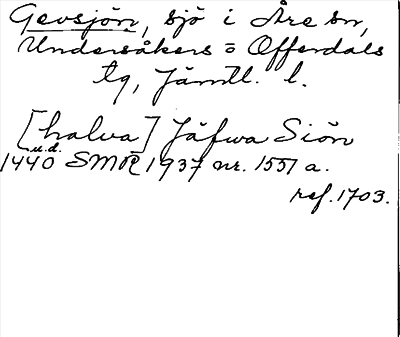 Gevsjön, sjö i Åre sn,
Undersåkers o Offerdals
tg, Jämtl. l.
[halva] Jäfwa Siön
u.d.
1440 SMR 1937 nr. 1551 a.
ref. 1703.